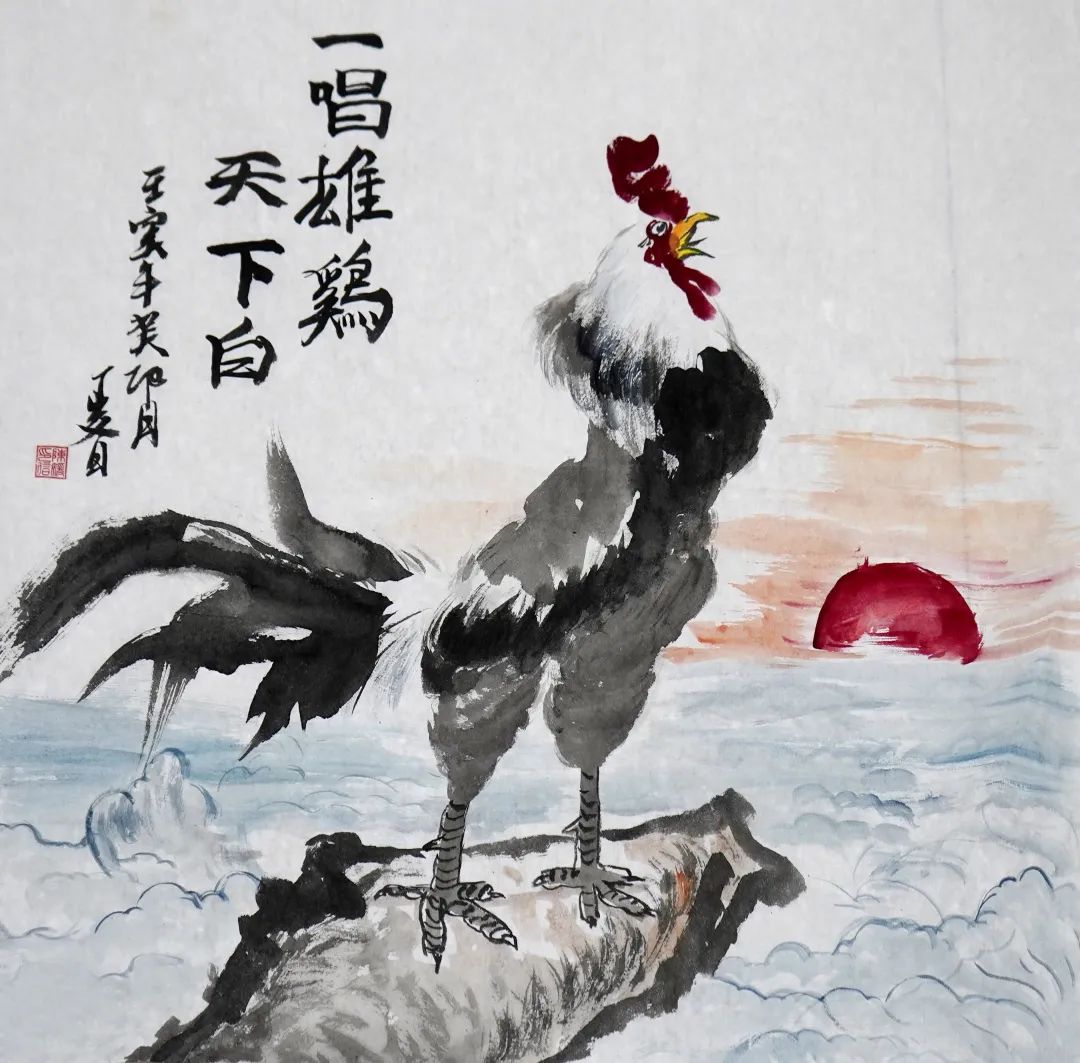 一唱雄鷄
天下白
壬寅年癸卯月